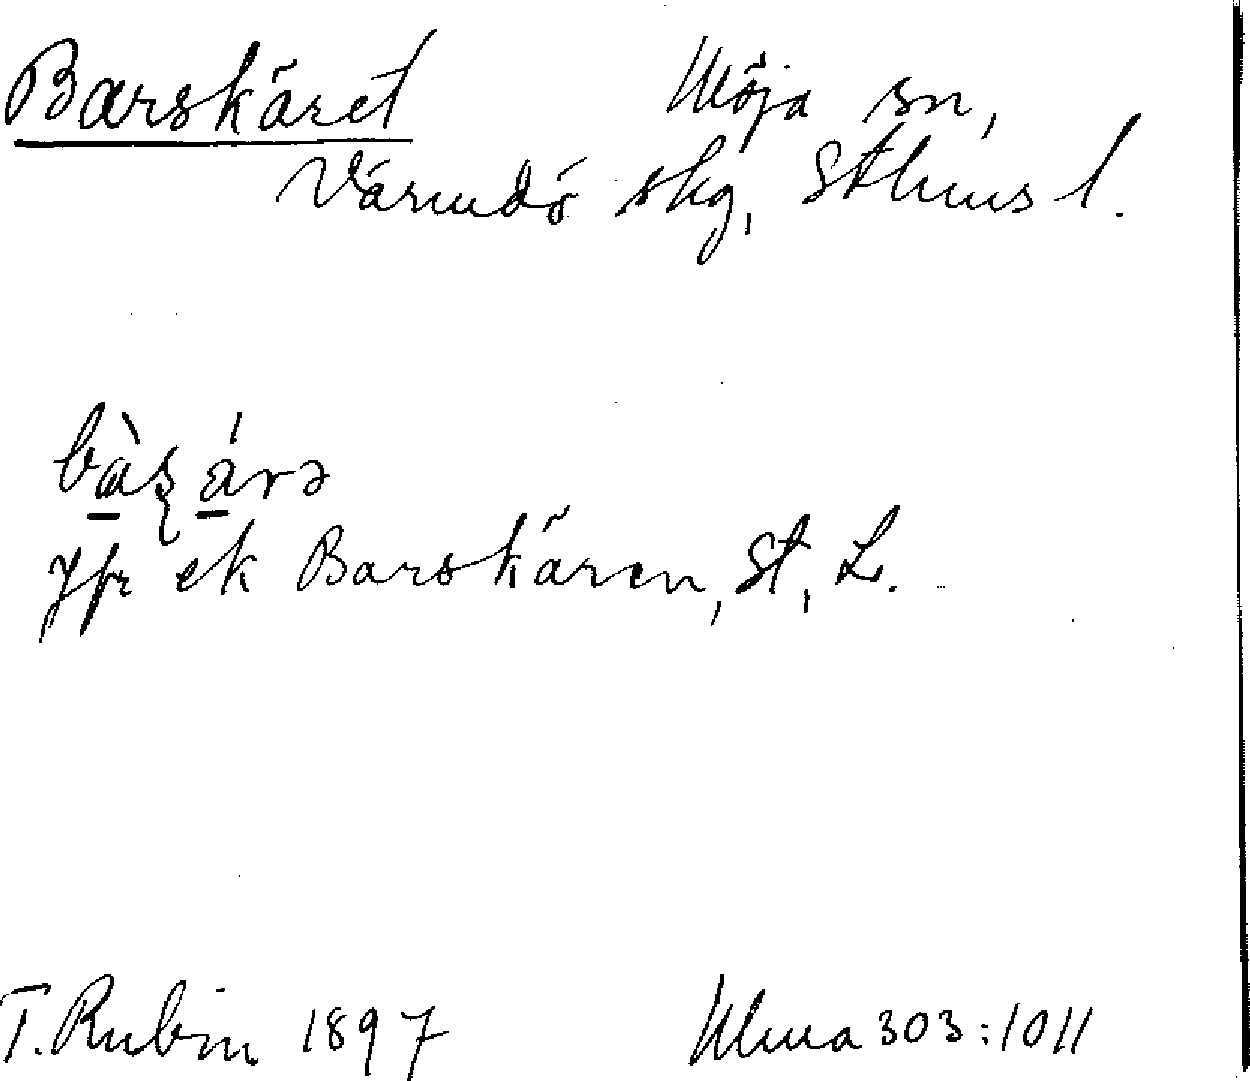 Barskäret Möja sn,
Värmdö skg, Sthms l.
bàʂárə
Jfr ek Barskären, St, L.
T. Rubin 1897 Ulma 303:1011